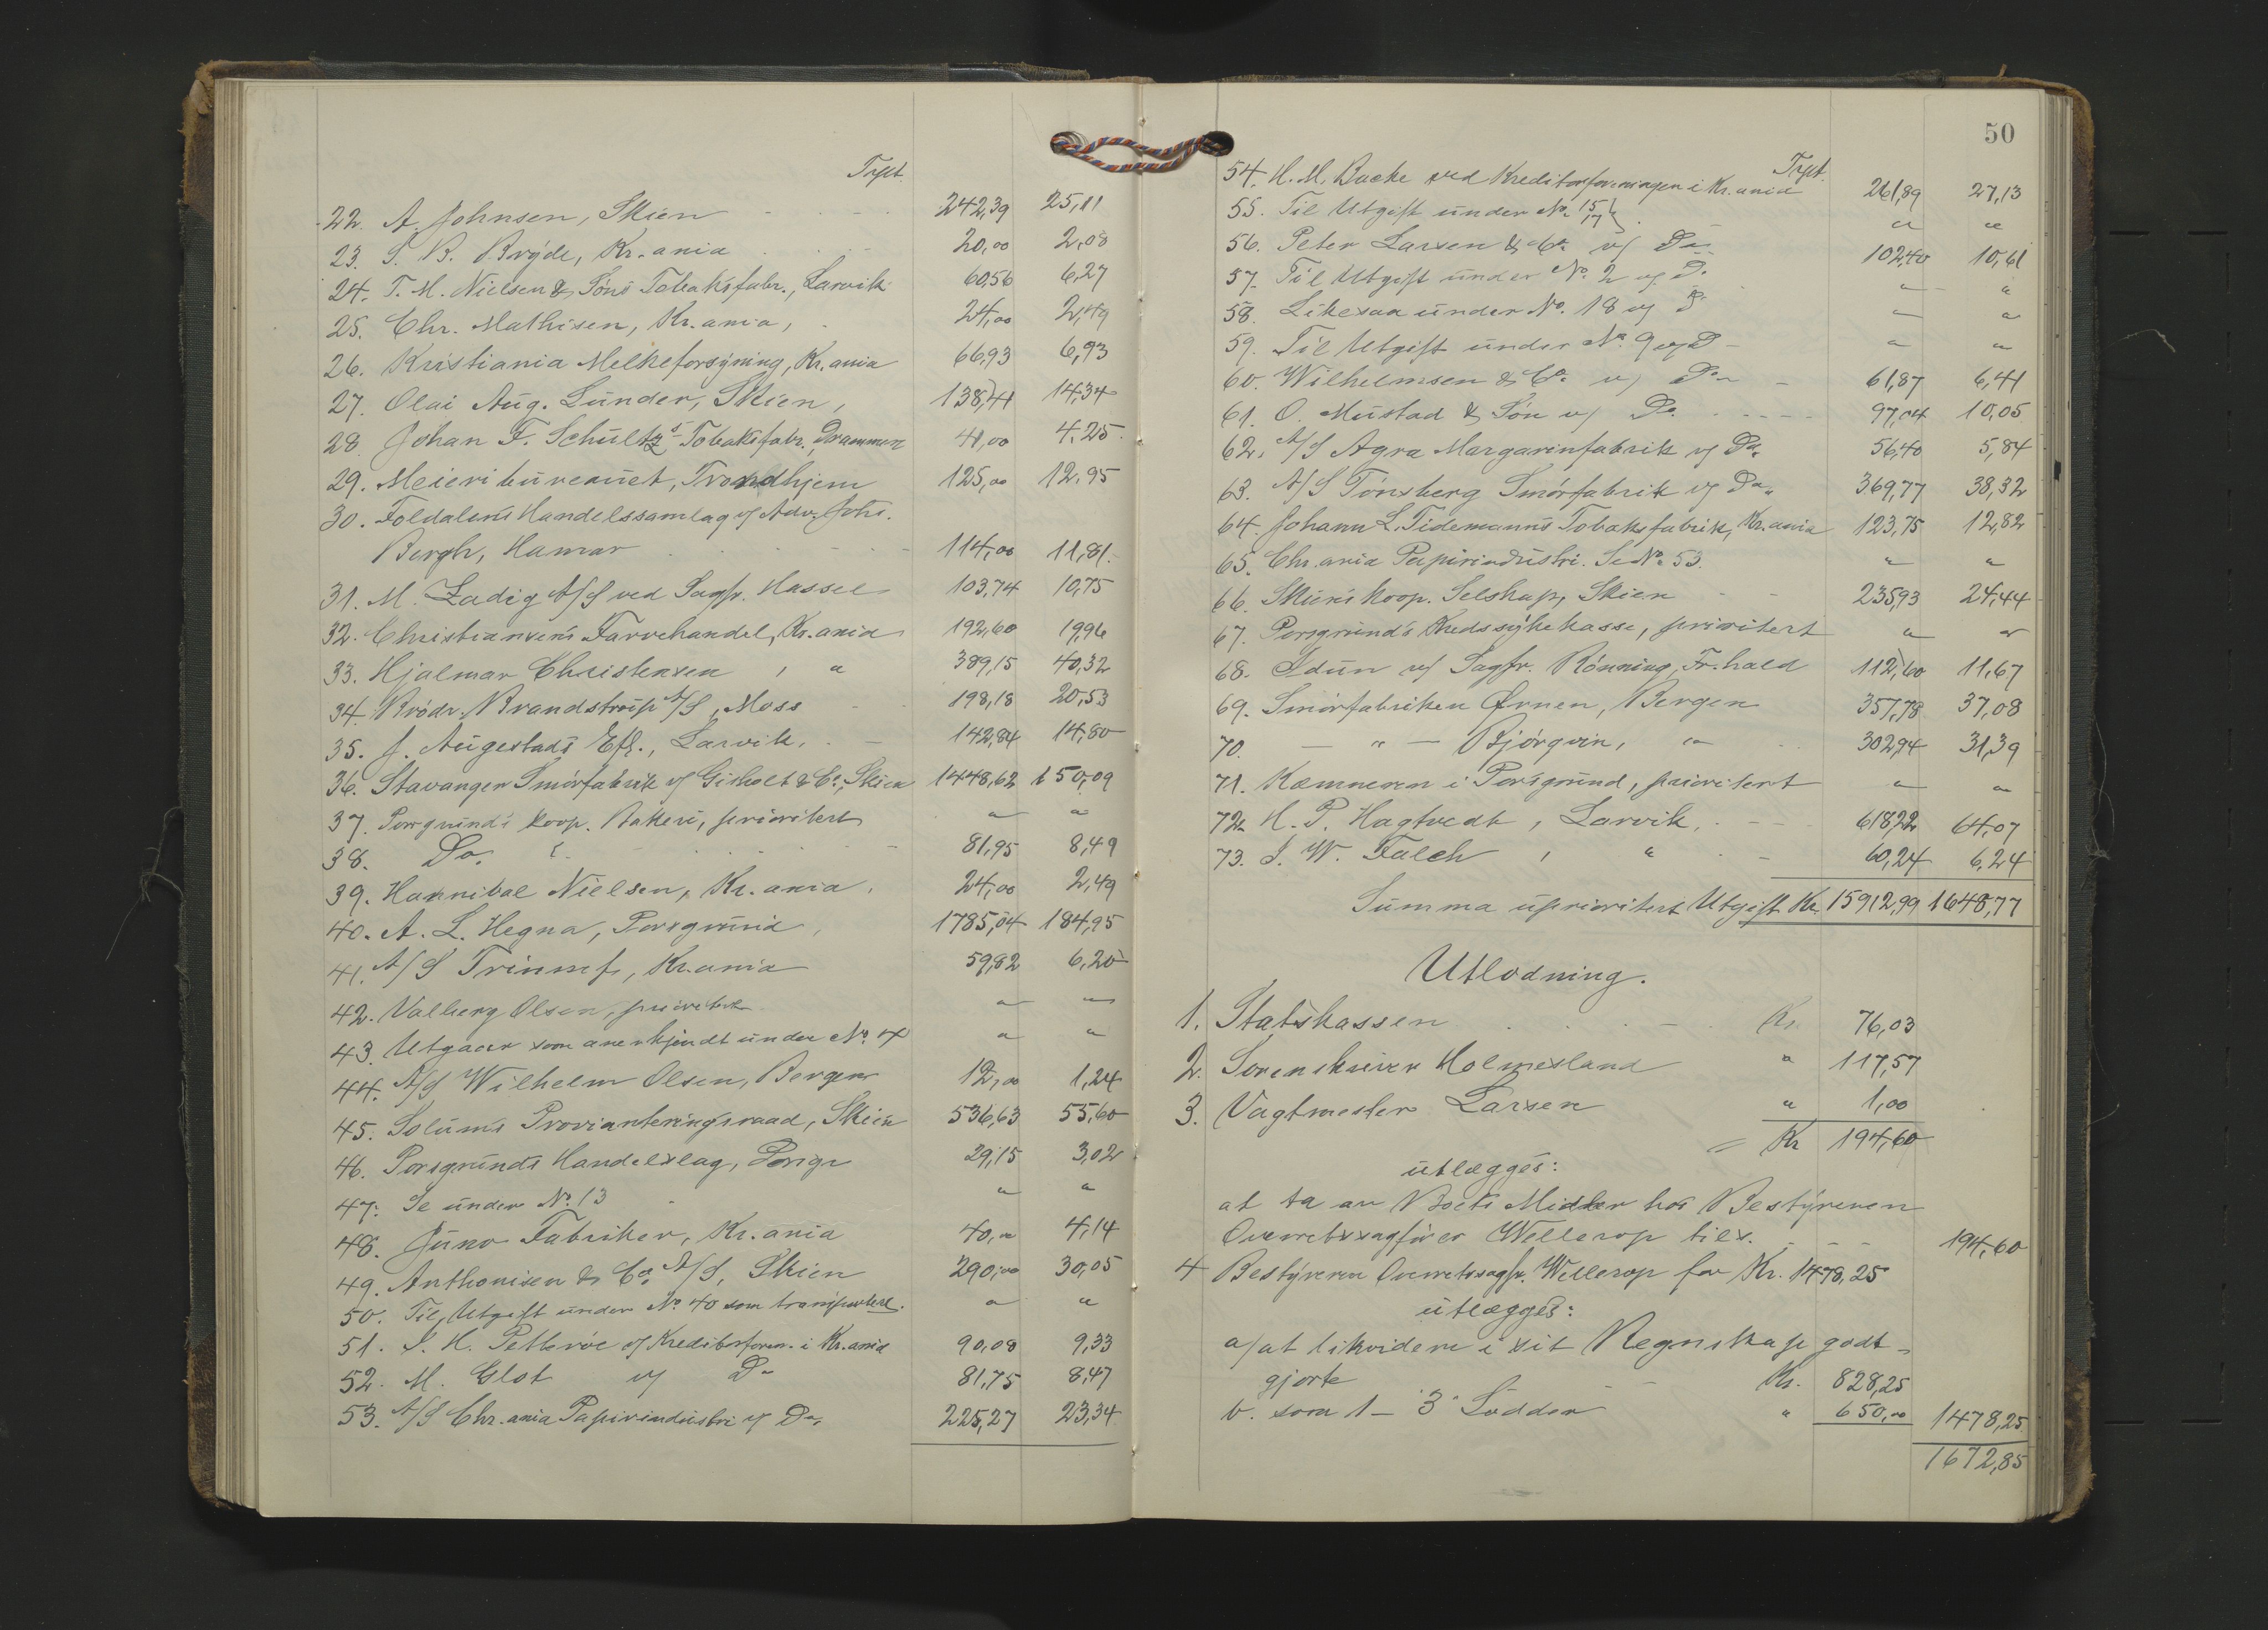 Trpt.
22. A. Johnsen, Skien 242,39 25,11
23. S. B. Bryde, Kr.ania 20,00 2,08
24. T. M. Nielsen & Søns Tobaksfabr., Larvik 60,56 6,27
25. Chr. Mathisen, Kr.ania, 24,00 2,49
26. Kristiania Melkeforsyning, Kr.ania 66,93 6,93
27. Olai Aug. Lunder, Skien, 138,41 14,34
28. Johan F. Schultz's Tobaksfabr., Drammen 41,00 4,25
29. Meieribureauet, Trondhjem 125,00 12,95
30. Foldalens Handelssamlag v/ Adv. Johs.
Bergh, Hamar 114,00 11,81
31. M. Zadig A/S ved Sagfr. Hassel 103,74 10,75
32. Christiansens Farvehandel, Kr.ania 192,60 19,96
33. Hjalmar Christensen , " 389,15 40,32
34. Brødr. Brandstrup A/S, Moss 198,18 20,53
35. J. Augestads Eft., Larvik, 142,84 14,80
36. Stavanger Smørfabrik v/ Gisholt & Co., Skien 1448,62 150,09
37. Porsgrunds koop. Bakeri, prioritert " "
38. Do. 81,95 8,49
39. Hannibal Nielsen, Kr.ania, 24,00 2,49
40. A. L. Hegna, Porsgrund, 1785,04 184,95
41. A/S Triumf, Kr.ania 59,82 6,20
42. Valberg Olsen, prioritert " "
43. Utgaar som anerkjendt under No. 4 " "
44. A/S Wilhelm Olsen, Bergen 12,00 1,24
45. Solums Provianteringsraad, Skien 536,63 55,60
46. Porsgrunds Handelslag, Porsgr 29,15 3,02
47. Se under No. 13 " "
48. Juno Fabriker, Kr.ania 40,00 4,14
49. Anthonisen & Co. A/S, Skien 290,00 30,05
50. Til Utgift under No. 40 som transportert. " "
51. J. H. Petterøe v/ Kreditorforen. i Kr.ania 90,08 9,33
52. M. Glot v/ Do 81,75 8,47
53. A/S Chr.ania Papirindustri v/ Do. 225,27 23,34
50
Trpt.
54. H. M. Backe ved Kreditorforeningen i Kr.ania 261,89 27,13
55. Til Utgift under No. 15/17 " "
56. Peter Larsen & Co. v/ Do 102,40 10,61
57. Til Utgift under No. 2 v/ D. " "
58. Likesaa under No. 18 v/ D " "
59. Til Utgift under No. 9 v/ D " "
60. Wilhelmsen & Co. v/ Do 61,87 6,41
61. O. Mustad & Søn v/ Do. 97,04 10,05
62. A/S Agra Margarinfabrik v/ Do. 56,40 5,84
63. A/S Tønsberg Smørfabrik v/ Do. 369,77 38,32
64. Johann L. Tidemanns Tobaksfabrik, Kr.ania 123,75 12,82
65. Chr.ania Papirindustri. Se No. 53. " "
66. Skiens koop. Selskap, Skien 235,93 24,44
67. Porsgrunds Kredssykekasse, prioritert " "
68. Idun v/ Sagfr. Rønning, Fr.hald 112,60 11,67
69. Smørfabriken Ørnen, Bergen 357,78 37,08
70. — " — Bjørgvin, " 302,94 31,39
71. Kæmneren i Porsgrund, prioritert " "
72. H. P. Hagtvedt, Larvik, 618,22 64,07
73. J. W. Falch , " 60,24 6,24
Summa uprioritert Utgift Kr. 15912,99 1648,77
Utlodning.
1. Statskassen Kr. 76,03
2. Sorenskriver Holmesland " 117,57
3. Vagtmester Larsen " 1,00
= Kr 194,60
utlægges:
at ta av Boets Midler hos Bestyreren
Overretssagfører Wellerop tils. 194,60
4 Bestyreren Overretssagfr. Wellerop for Kr. 1478,25
utlægges:
a/ at likvidere i sit Regnskap godt-
gjorte Kr. 828,25
b. som 1 - 3 Lodder " 650,00 1478,25
1672,85